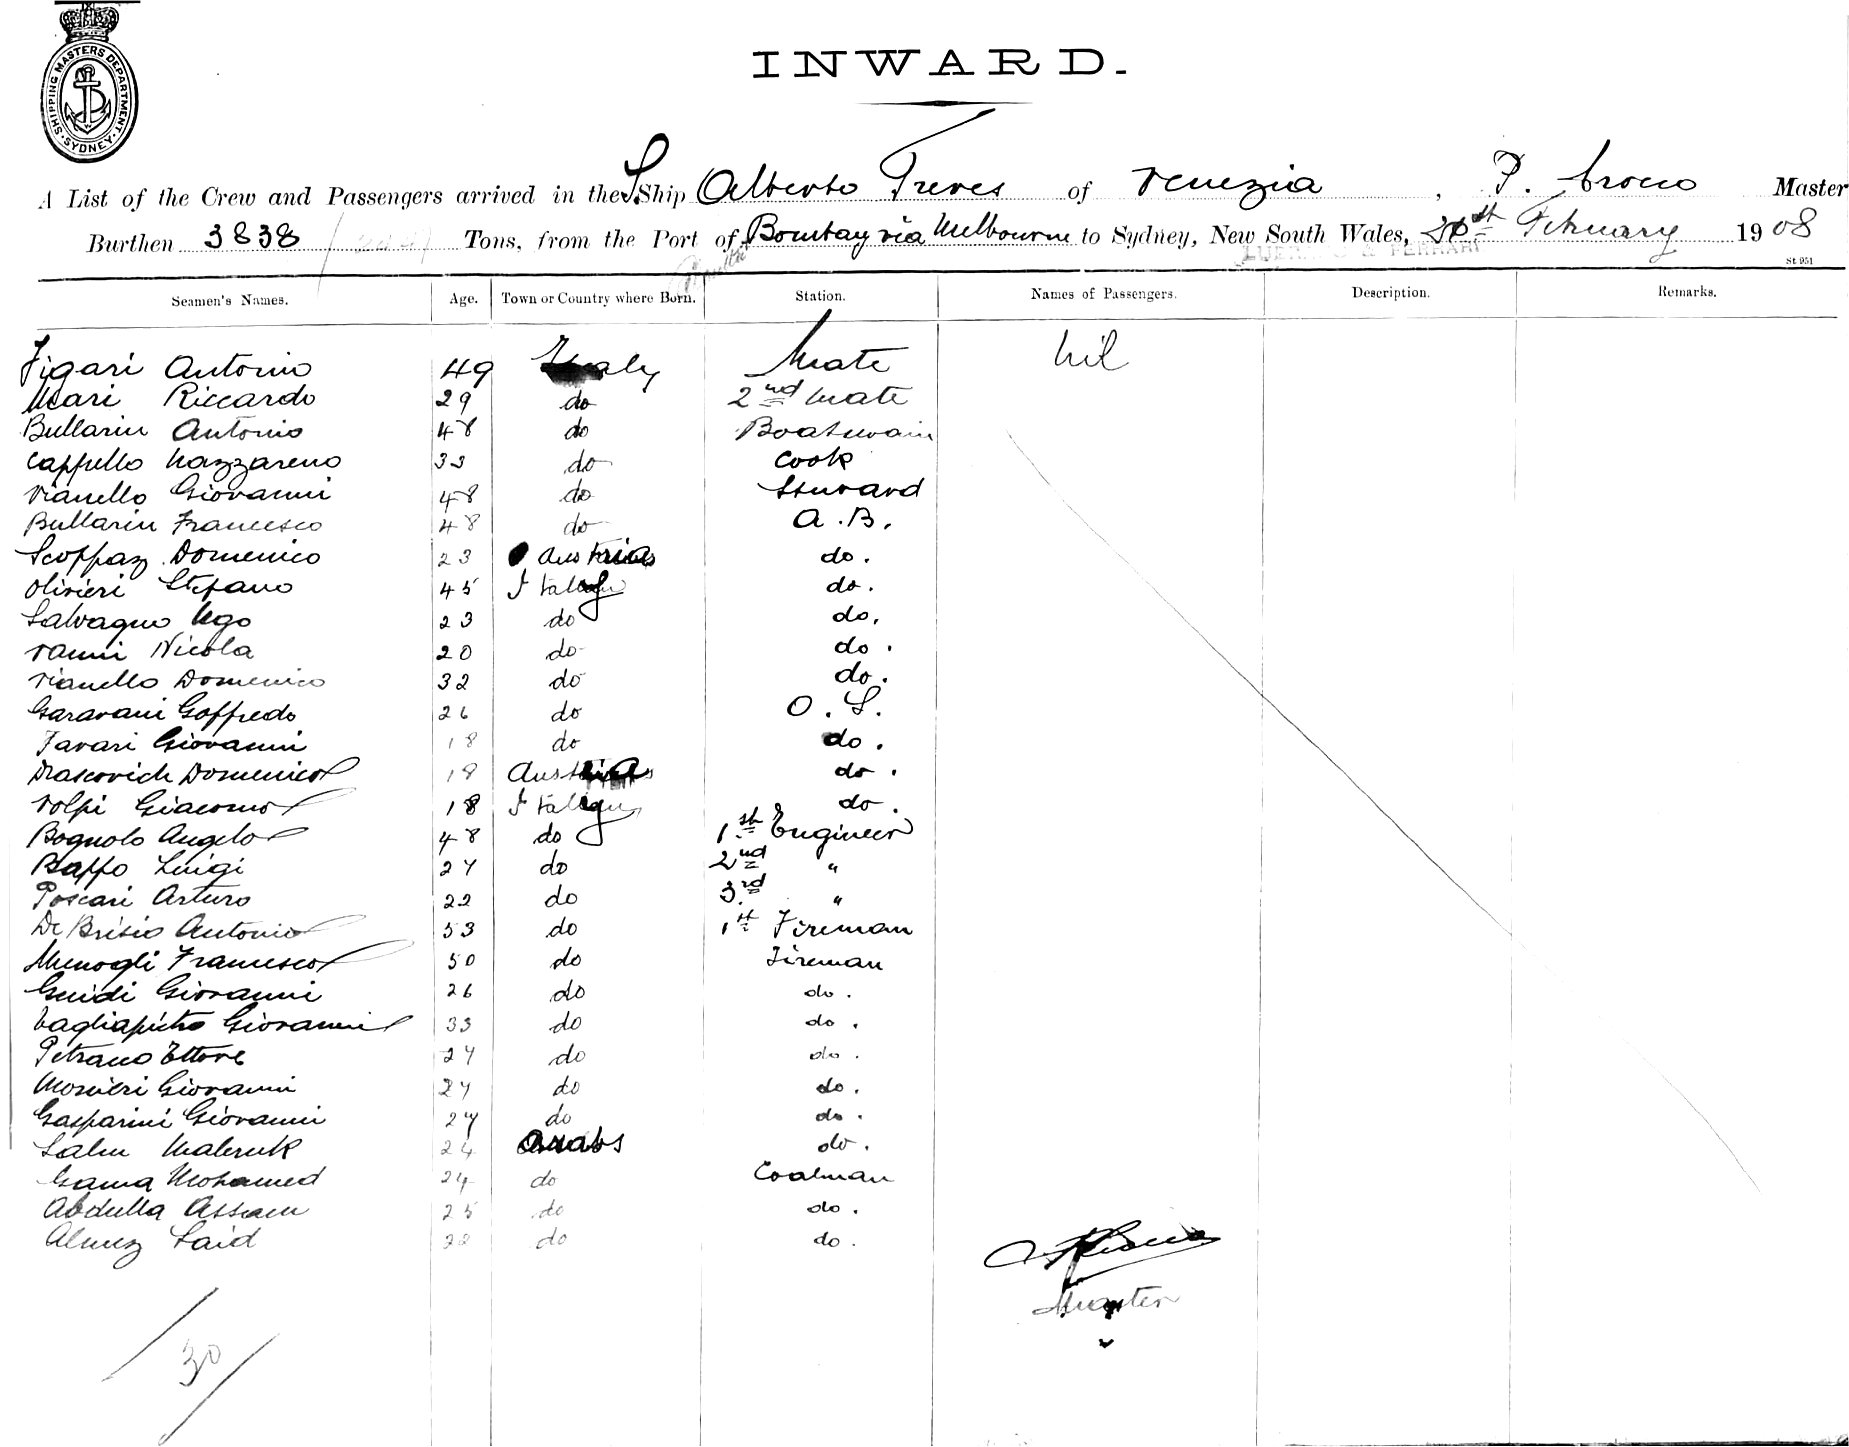 SHIPPING MASTERS DEPARTMENT. SYDNEY
INWARD.
A List of the Crew and Passengers arrived in the S.Ship Alberto Treves of Venezia, P. Crocco Master
Burthen 3838 Tons, from the Port of Bombay via Melbourne to Sydney, New South Wales, st February 1908
St 951
Seamen's Names. Age. Town or Country where Born. Station. Names of Passengers. Description. Remarks.
Figari Antonio 49 Italy Mate Nil
Mari Riccardo 29 do 2nd Mate
Bullarin Antonio 48 do Boatswain
Cappello Nazzareno 33 do Cook
Vianello Giovanni 48 do Steward
Bullarin Francesco 48 do A.B.
Scoppaz Domenico 23 Austria do.
Olivieri Stefano 45 Italy do.
Salvagno Ugo 23 do do.
Vanni Nicola 20 do do.
Vianello Domenico 32 do do.
Garavani Goffredo 26 do O.S.
Tavari Giovanni 18 do do.
Drascovich Domenico 18 Austria do.
Volpi Giacomo 18 Italy do.
Bognolo Angelo 48 do 1st Engineer
Baffo Luigi 27 do 2nd "
Poscari Arturo 22 do 3rd "
De Brisio Antonio 53 do 1st Fireman
Menogli Francesco 50 do Fireman
Guidi Giovanni 26 do do.
Tagliapietro Giovanni 33 do do.
Petrano Ettore 27 do do.
Monieri Giovanni 27 do do.
Gasparini Giovanni 27 do do.
Salem Mabruk 24 Arabs do.
Gama Mohamed 24 do Coalman
Abdulla Assam 25 do do.
Said 22 do do.
Master
30